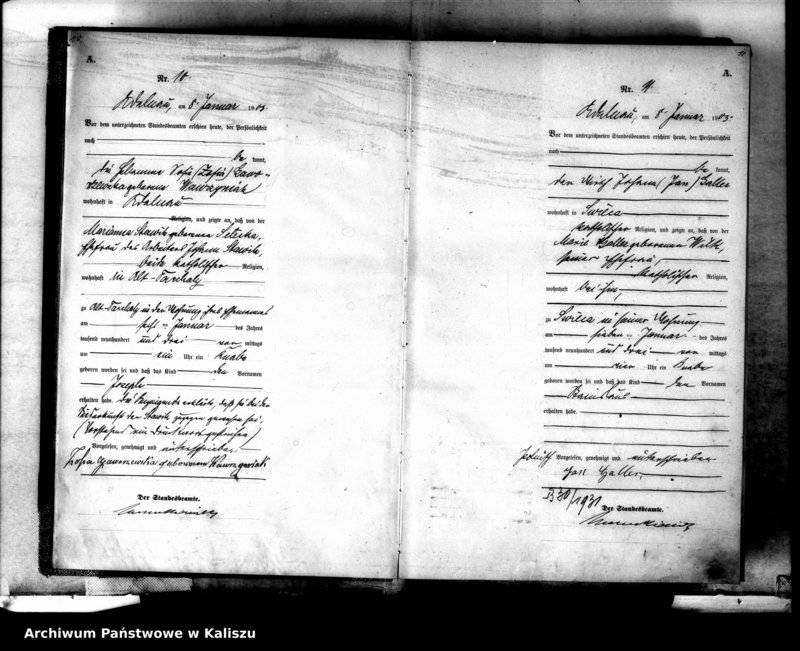 10.
A.
Nr. 10.
Adelnau, am 8. Januar 1903.
Vor dem unterzeichneten Standesbeamten erschien heute, der Persönlichkeit
nach
be kannt,
die Hebamme Sofia (Zofia) Gawo-
geborene Wawrzyniak
wohnhaft in Adelnau
Religion, und zeigte an, daß von der
Marianna Stawik geborenen
Ehefrau des Arbeiters Johann Stawik,
beide katholischer Religion,
wohnhaft in Alt-Tarchaly
zu Alt-Tarchaly in der Wohnung ihres Ehemannes
am Januar des Jahres
tausend neunhundert und drei vor mittags
um ein Uhr ein Knabe
geboren worden sei und daß das Kind den Vornamen
Joseph
erhalten habe. Die Anzeigende erklärte, daß sie bei der
Niederkunft der Stawik zugegen gewesen sei.
(Vorstehend ein Druckwort gestrichen)
Vorgelesen, genehmigt und unterschrieben
Zofia geborenen
Der Standesbeamte.
11
A.
Nr. 11.
Adelnau, am 8. Januar 1903.
Vor dem unterzeichneten Standesbeamten erschien heute, der Persönlichkeit
nach
be kannt,
der Wirth Johann (Jan) Galler
wohnhaft in Swieca
katholischer Religion, und zeigte an, daß von der
Marie Galler geborenen Wilk,
seiner Ehefrau,
katholischer Religion,
wohnhaft bei ihm,
zu Swieca in seiner Wohnung
am sieben Januar des Jahres
tausend neunhundert und drei vor mittags
um vier Uhr ein Knabe
geboren worden sei und daß das Kind den Vornamen
erhalten habe.
Vorgelesen, genehmigt und unterschrieben
Jan Galler.
1931
Der Standesbeamte.
Archiwum Państwowe w Kaliszu